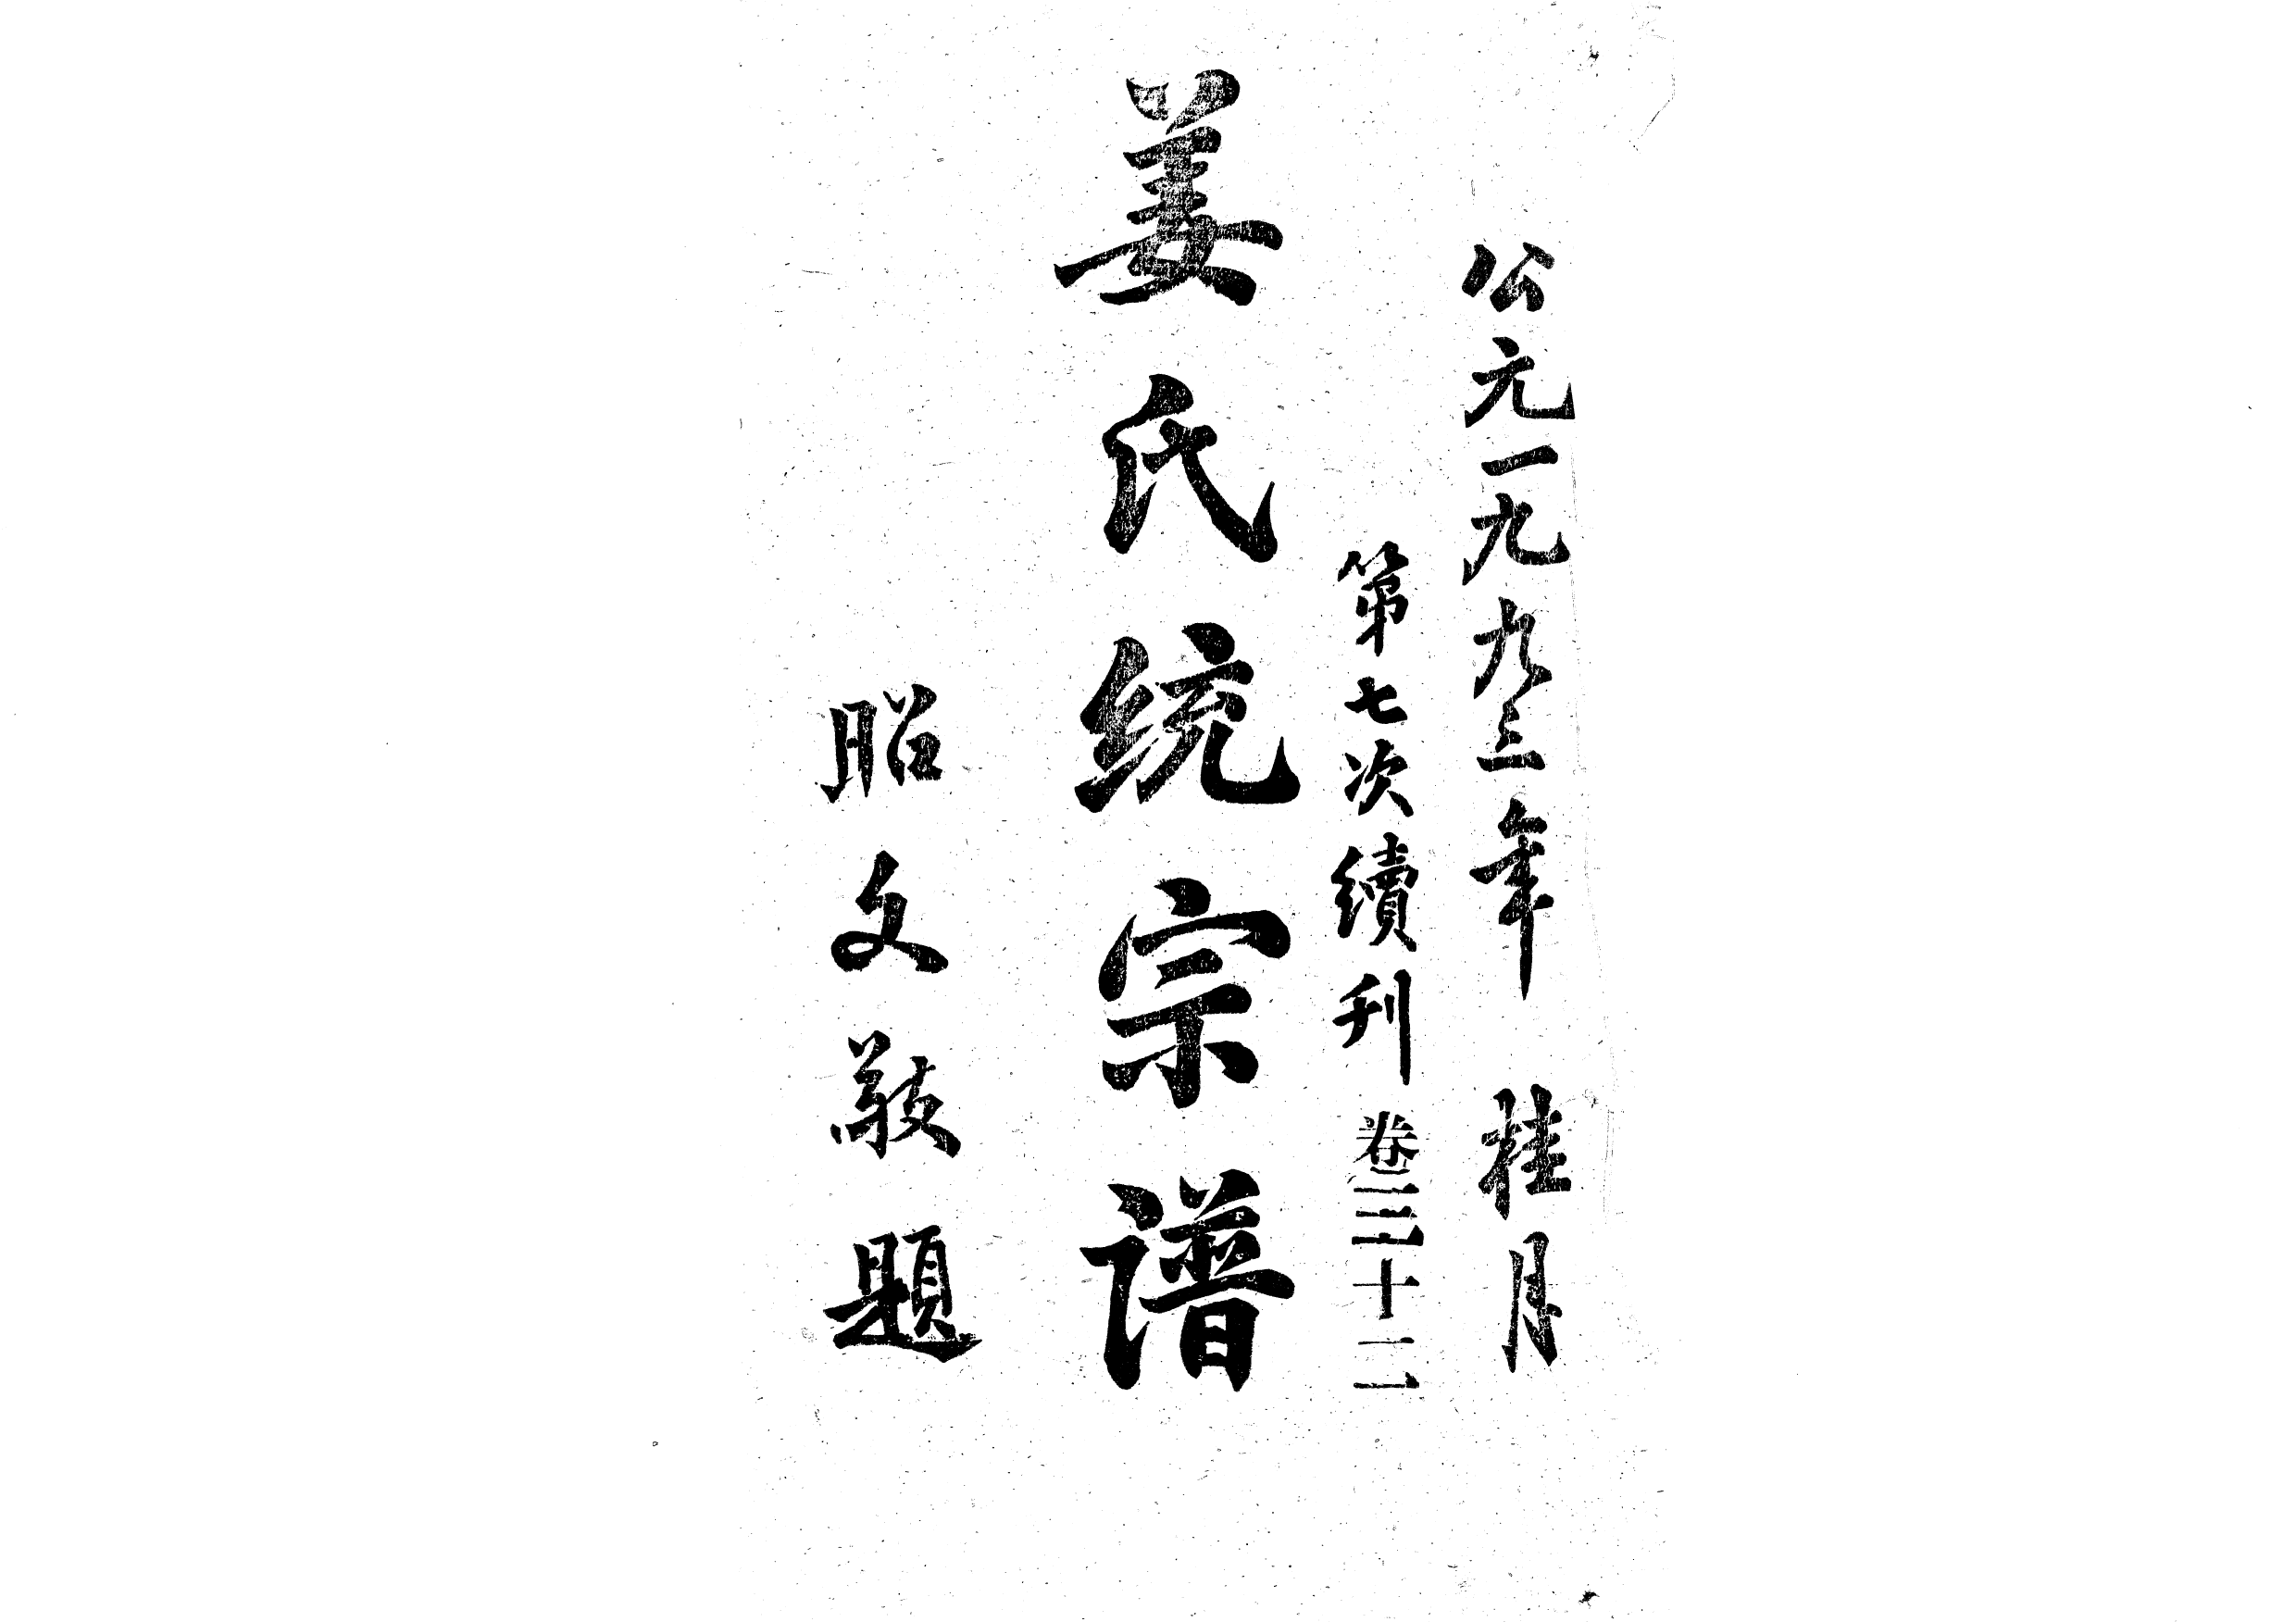 公元一九九三年 桂月
第七次續刊 卷三十二
姜氏统宗谱
昭文敬題